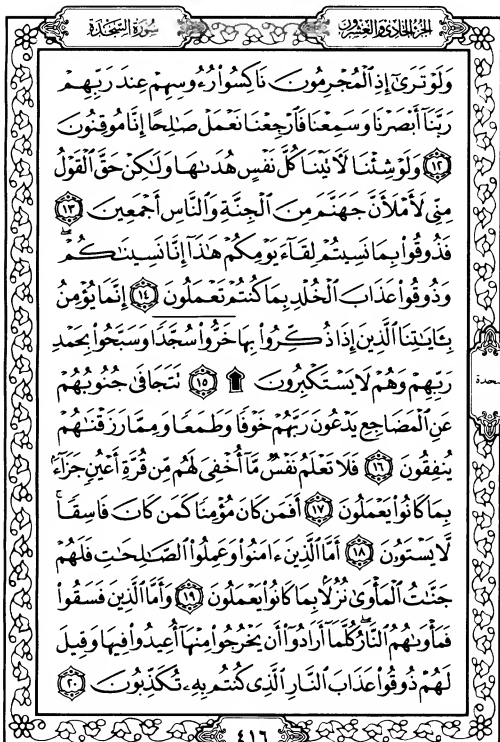 الجزء الحادي والعشرون
سورة السجدة
وَلَوْ تَرَىٰٓ إِذِ ٱلْمُجْرِمُونَ نَاكِسُوا۟ رُءُوسِهِمْ عِندَ رَبِّهِمْ
رَبَّنَآ أَبْصَرْنَا وَسَمِعْنَا فَٱرْجِعْنَا نَعْمَلْ صَٰلِحًا إِنَّا مُوقِنُونَ
﴿١٢﴾ وَلَوْ شِئْنَا لَءَاتَيْنَا كُلَّ نَفْسٍ هُدَىٰهَا وَلَٰكِنْ حَقَّ ٱلْقَوْلُ
مِنِّى لَأَمْلَأَنَّ جَهَنَّمَ مِنَ ٱلْجِنَّةِ وَٱلنَّاسِ أَجْمَعِينَ ﴿١٣﴾
فَذُوقُوا۟ بِمَا نَسِيتُمْ لِقَآءَ يَوْمِكُمْ هَٰذَآ إِنَّا نَسِينَٰكُمْ ۖ
وَذُوقُوا۟ عَذَابَ ٱلْخُلْدِ بِمَا كُنتُمْ تَعْمَلُونَ ﴿١٤﴾ إِنَّمَا يُؤْمِنُ
بِـَٔايَٰتِنَا ٱلَّذِينَ إِذَا ذُكِّرُوا۟ بِهَا خَرُّوا۟ سُجَّدًا وَسَبَّحُوا۟ بِحَمْدِ
رَبِّهِمْ وَهُمْ لَا يَسْتَكْبِرُونَ ۩ ﴿١٥﴾ تَتَجَافَىٰ جُنُوبُهُمْ
عَنِ ٱلْمَضَاجِعِ يَدْعُونَ رَبَّهُمْ خَوْفًا وَطَمَعًا وَمِمَّا رَزَقْنَٰهُمْ
يُنفِقُونَ ﴿١٦﴾ فَلَا تَعْلَمُ نَفْسٌ مَّآ أُخْفِىَ لَهُم مِّن قُرَّةِ أَعْيُنٍ جَزَآءًۢ
بِمَا كَانُوا۟ يَعْمَلُونَ ﴿١٧﴾ أَفَمَن كَانَ مُؤْمِنًا كَمَن كَانَ فَاسِقًا ۚ
لَّا يَسْتَوُۥنَ ﴿١٨﴾ أَمَّا ٱلَّذِينَ ءَامَنُوا۟ وَعَمِلُوا۟ ٱلصَّٰلِحَٰتِ فَلَهُمْ
جَنَّٰتُ ٱلْمَأْوَىٰ نُزُلًۢا بِمَا كَانُوا۟ يَعْمَلُونَ ﴿١٩﴾ وَأَمَّا ٱلَّذِينَ فَسَقُوا۟
فَمَأْوَىٰهُمُ ٱلنَّارُ ۖ كُلَّمَآ أَرَادُوٓا۟ أَن يَخْرُجُوا۟ مِنْهَآ أُعِيدُوا۟ فِيهَا وَقِيلَ
لَهُمْ ذُوقُوا۟ عَذَابَ ٱلنَّارِ ٱلَّذِى كُنتُم بِهِۦ تُكَذِّبُونَ ﴿٢٠﴾
٤١٦